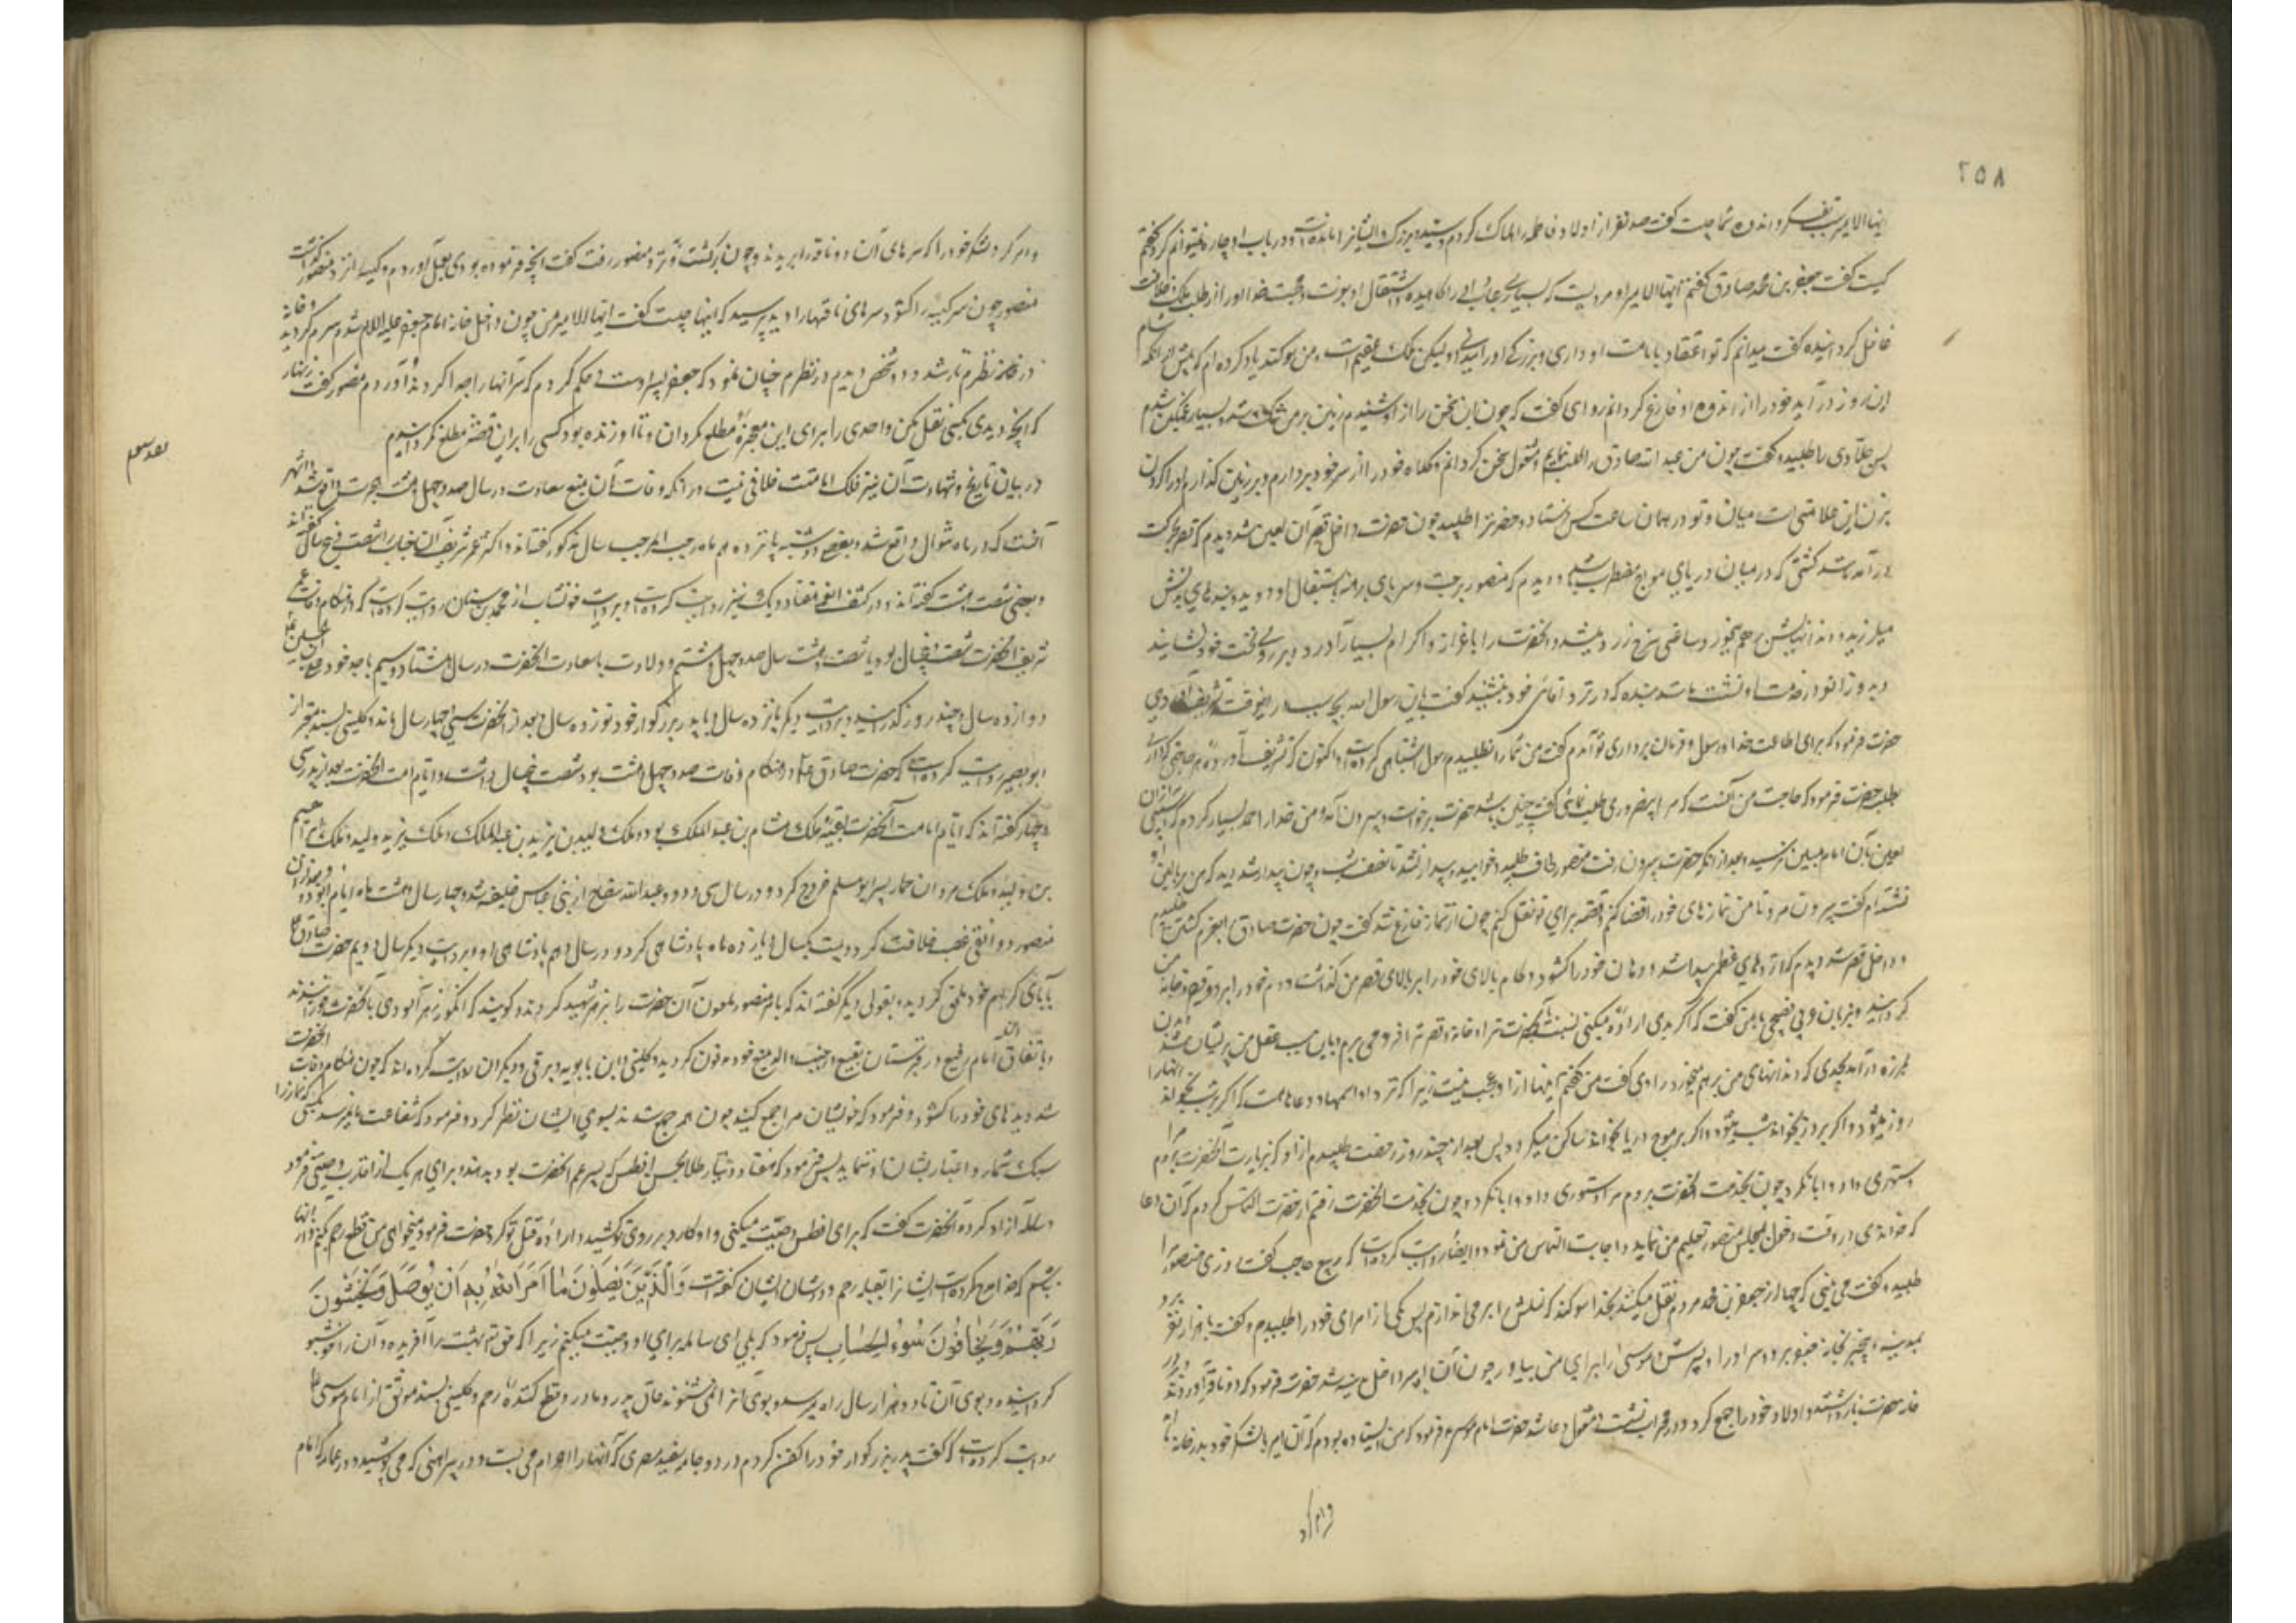 ٢٥٨
ایها الامیر سبب تفکر و اندوه شما چیست گفت صد نفر از اولاد فاطمه را هلاک کردم و سید و بزرگ ایشان مانده است و در باب او چاره نمیتوانم کرد گفتم
کیست گفت جعفر بن محمد صادق گفتم ایها الامیر او مردیست که بسیاری عبادت او را کاهیده و اشتغال او بقرب و محبت خدا او را از طلب ملک و خلافت
غافل گردانیده گفت میدانم که تو اعتقاد بامامت او داری و بزرگی او را میدانی و لیکن ملک عقیم است و من سوکند یاد کرده ام که پیش از آنکه شام
این روز در آید خود را از اندوه او فارغ گردانم راوی گفت که چون این سخن را از او شنیدم زمین بر من تنگ شد و بسیار غمگین شدم
پس جلادی را طلبید و گفت چون من عبد الله صادق را طلب نمایم و مشغول سخن گردانم و کلاه خود را از سر خود بردارم و بر زمین گذارم او را گردن
بزن این علامتی است میان من و تو در همان ساعت کس فرستاد و حضرت را طلبید چون حضرت داخل قصر آن لعین شد دیدم که قصر بحرکت
در آمد مانند کشتی که در میان دریای مواج مضطرب باشد و دیدم که منصور برجست و سر و پای برهنه باستقبال او دوید و بندهای بدنش
میلرزید و دندانهایش بر هم میخورد و ساعتی سرخ و زرد میشد و آنحضرت را باعزاز و اکرام بسیار آورد و بر روی تخت خود نشانید
و بدو زانو در خدمت او نشست مانند بنده که در نزد آقای خود بنشیند گفت یابن رسول الله بچه سبب در اینوقت تشریف آوردی
حضرت فرمود که برای اطاعت خدا و رسول و فرمان برداری تو آمدم گفت من شما را نطلبیدم رسول اشتباهی کرده است و اکنون که تشریف آورده هر حاجتی که داری
بطلب حضرت فرمود که حاجت من آنست که مرا بیضروری طلب ننمائی گفت چنین باشد حضرت برخواست و بیرون آمد و من خدا را حمد بسیار کردم که آسیبی از آن
لعین بآن امام مبین نرسید و بعد از آنکه حضرت بیرون رفت منصور لحاف طلبید و خوابید و بیدار نشد تا نصف شب و چون بیدار شد دید که من بر بالین او
نشسته ام گفت بیرون مرو تا من نمازهای خود را قضا کنم و قصه برای تو نقل کنم چون از نماز فارغ شد گفت چون حضرت صادق را بعزم کشتن طلبیدم
و داخل قصر شد دیدم که اژدهای عظیم پیدا شد و دهان خود را گشود و کام بالای خود را بر بالای قصر من گذاشت و دم خود را بر دور قصر و خانه من
گردانید و بزبان عربی فصیح با من گفت که اگر بدی اراده میکنی نسبت بآنحضرت ترا و خانه و قصر ترا فرو می برم و باین سبب عقل من پریشان شد و بدن من
بلرزه در آمد بحدی که دندانهای من بر هم میخورد راوی گفت من گفتم اینها از او عجب نیست زیرا که نزد او اسمها و دعاها هست که اگر بر شب بخواند آنها را
روز میشود و اگر بر روز بخواند شب میشود و اگر بر موج دریا بخواند ساکن میگردد پس بعد از چند روز رخصت طلبیدم از او که بزیارت آنحضرت بروم مرا
دستوری داد و ابا نکرد چون بخدمت آنحضرت رفتم از حضرت التماس کردم که آن دعا
که خواندی در وقت دخول مجلس منصور تعلیم من نماید و اجابت التماس من نمود و ایضا روایت کرده است که ربیع حاجب گفت روزی منصور مرا
طلبید و گفت می بینی که چها از جعفر بن محمد مردم نقل میکنند بخدا سوکند که نسلش را بر می اندازم پس یکی از امرای خود را طلبید و گفت با هزار نفر برو
بمدینه و بیخبر بخانه جعفر برو و سر او را و پسرش موسی را برای من بیاور چون آن امیر داخل مدینه شد حضرت فرمود که دو ناقه آوردند و بر در
خانه حضرت باز داشتند و اولاد خود را جمع کرد و در محراب نشست و مشغول دعا شد حضرت امام موسی فرمود که من ایستاده بودم که آن امیر با لشکر خود بدر خانه ما
و امر کرد لشکر خود را که سرهای آن دو ناقه را بریدند و چون برگشت و نزد منصور رفت گفت آنچه فرموده بودی بعمل آوردم و کیسه را نزد منصور گذاشت
منصور چون سر کیسه را گشود و سرهای ناقهها را دید پرسید که اینها چیست گفت ایها الامیر من چون داخل خانه امام جعفر علیه السلام شدم سرم گردید و خانه
در نظرم تار شد و دو شخص دیدم در نظرم چنان نمود که جعفر و پسر اوست و حکم کردم که سر آنها را جدا کردند و آوردم منصور گفت زنهار
که آنچه دیدی بکسی نقل مکن و احدی را برای این معجزه مطلع مگردان و تا او زنده بود کسی را بر این قصه مطلع نگردانیدم
در بیان تاریخ و شهادت آن نیر فلک امامت خلافی نیست در آنکه وفات آن منبع سعادت در سال صد و چهل و هشت هجرت واقع شد و اشهر
آنست که در ماه شوال واقع شد و بعضی دوشنبه پانزدهم ماه رجب المرجب سال مذکور گفته اند و اکثر عمر شریف آن جناب را شصت و پنج سال گفته اند
و بعضی شصت و هشت گفته اند و در کشف الغمه هفتاد و یک نیز روایت کرده است و بروایت خشاب از محمد بن سنان روایت کرده است که در هنگام وفات عمر
شریف آنحضرت شصت و پنجسال بود یا شصت و هشت سال صد و چهل و هشتم و ولادت با سعادت آنحضرت در سال هشتاد و سیم با جد خود علی بن الحسین
دوازده سال و چند روز گذرانید و بروایت دیگر پانزده سال و با پدر بزرگوار خود نوزده سال و بعد از آنحضرت سی و چهار سال ماند و کلینی بسند معتبر از
ابو بصیر روایت کرده است که حضرت صادق در هنگام وفات صد و چهل و هشت بود شصت و پنجسال داشت و ایام امامت آنحضرت بعد از پدر سی
و چهار گفته اند که ایام امامت آنحضرت بقیه ملک هشام بن عبد الملک بود و ملک ولید بن یزید بن عبد الملک و ملک یزید ولید و ملک ابراهیم
بن ولید و ملک مروان حمار پس ابو مسلم خروج کرد و در سال سی و دو و عبد الله سفاح از بنی عباس خلیفه شد و چهار سال و هشت ماه ایام او بود و بعد از آن
منصور دوانقی غصب خلافت کرد و بیست و یکسال و یازده ماه پادشاهی کرد و در سال دهم پادشاهی او و بروایت دیگر سال دویم حضرت صادق
بآبای کرام خود ملحق گردید و بقولی دیگر گفته اند که بامر منصور ملعون آن حضرت را بزهر شهید کردند و گویند که انگور زهر آلودی بآنحضرت خورانیدند
و باتفاق آن امام رفیع در قبرستان بقیع در جنب والد منبع خود مدفون گردید و کلینی و ابن بابویه و برقی و دیگران روایت کرده اند که چون هنگام وفات آنحضرت
شد دیدهای خود را گشود و فرمود که خویشان مرا جمع کنید چون همه جمع شدند بسوی ایشان نظر کرد و فرمود که شفاعت ما نمیرسد بکسی که نماز را
سبک شمارد و اعتبار بشأن او ننماید پس فرمود که هفتاد دینار طلا بحسن افطس که پسر عم آنحضرت بود بدهند و برای هر یک از اقارب وصیتی فرمود
و سالمه آزاد کرده آنحضرت گفت که برای افطس وصیت میکنی و او کارد بر روی تو کشید و اراده قتل تو کرد حضرت فرمود میخواهی من قطع رحم کنم و از آنها
باشم که خدا مدح کرده است ایشان را بصله رحم و در شأن ایشان گفته است وَالَّذِینَ یَصِلُونَ مَا اَمَرَ اللهُ بِهِ اَنْ یُوصَلَ وَیَخْشَوْنَ
رَبَّهُمْ وَیَخَافُونَ سُوءَ الحِسَابِ پس فرمود که بلی ای سالمه برای او وصیت میکنم زیرا که حق تعالی بهشت را آفریده و آن را خوشبو
گردانیده و بوی آن تا دو هزار سال راه میرسد و بوی آنرا نمیشنوند عاق پدر و مادر و قطع کننده رحم و کلینی بسند موثق از امام موسی
روایت کرده است که گفت پدر بزرگوار خود را کفن کردم در دو جامه سفید مصری که آنها را احرام می بست و در پیراهنی که می پوشید و در عمامه که امام